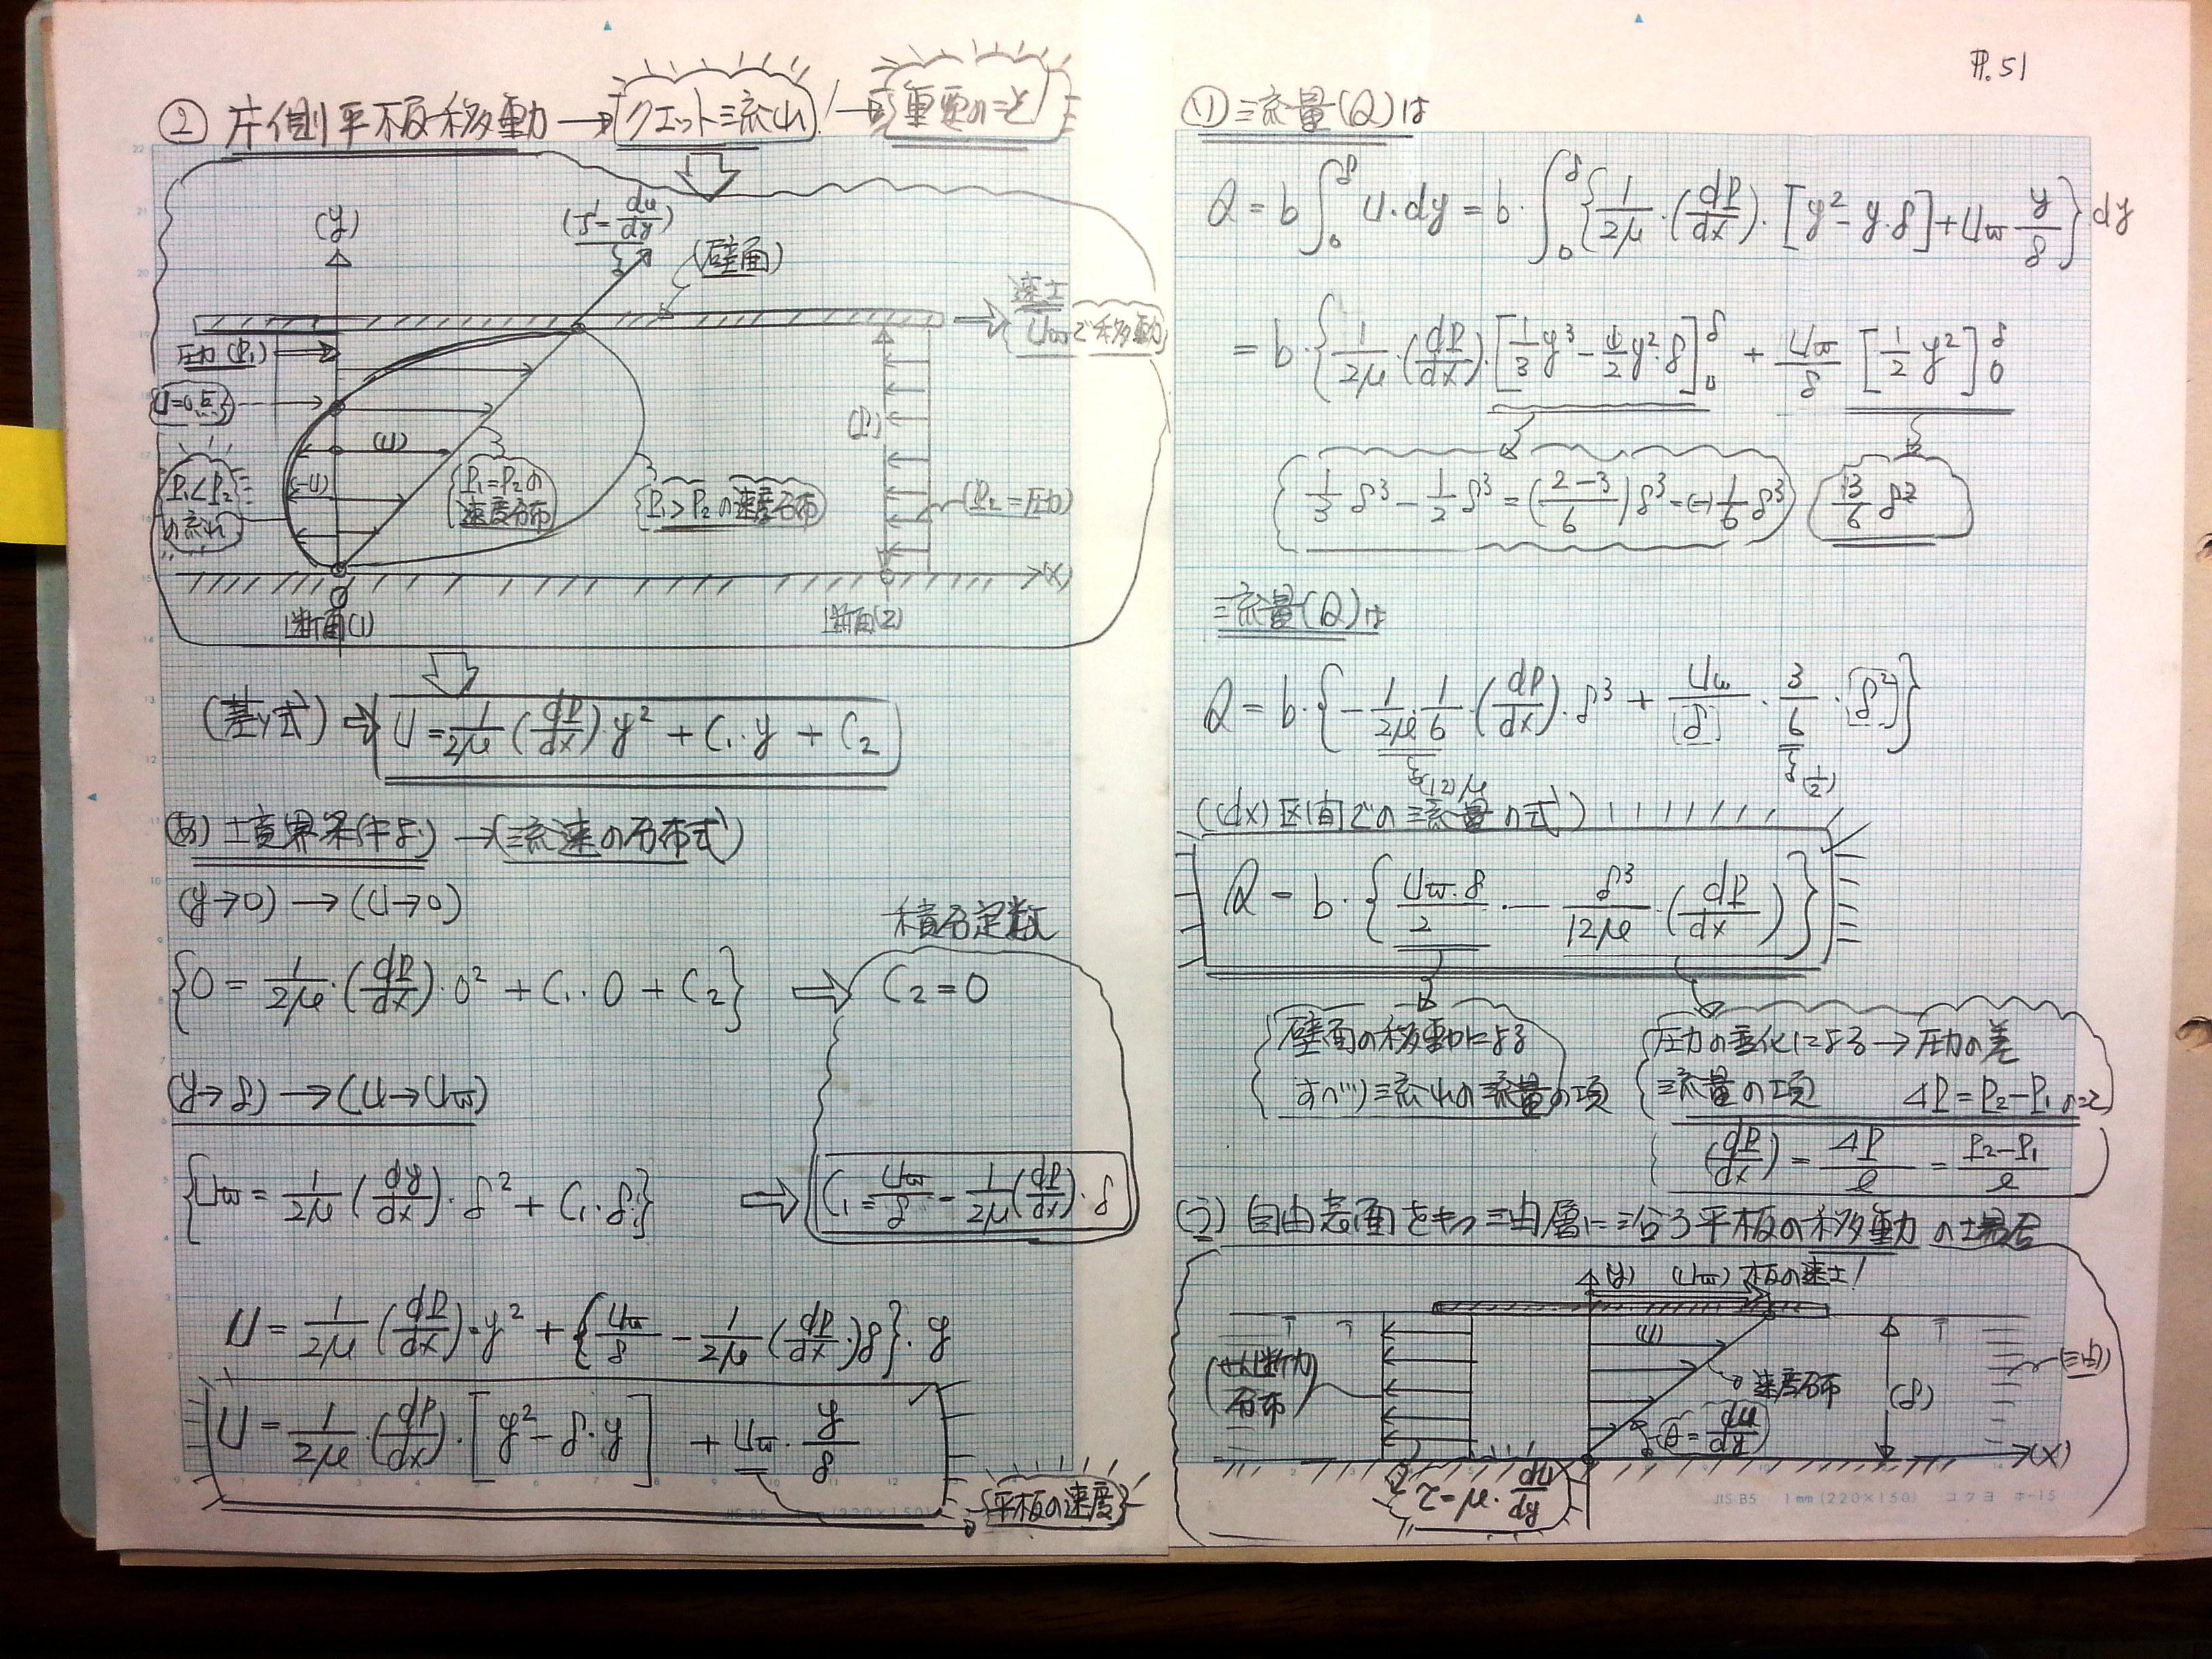 P.51
② 片側平板移動 → クエット流れ! → 重要のこと!
(y)
(壁面)
速さ
Uw で移動
圧力(P₁)
U=0点
(u)
(-u)
P₁<P₂
の流れ
P₁=P₂の
速度分布
P₁>P₂の速度分布
(P₂=圧力)
(x)
0
断面(1)
断面(2)
(基式) ⇒ U = 1/2μ (dP/dx)·y² + C₁·y + C₂
(あ) 境界条件より → (流速の分布式)
(y→0) → (U→0)
積分定数
{0 = 1/2μ·(dP/dx)·0² + C₁·0 + C₂} ⇒ C₂ = 0
(y→δ) → (U→Uw)
{Uw = 1/2μ (dy/dx)·δ² + C₁·δ} ⇒ C₁ = Uw/δ - 1/2μ (dP/dx)·δ
U = 1/2μ (dP/dx)·y² + {Uw/δ - 1/2μ (dP/dx·)δ}·y
U = 1/2μ·(dP/dx)·[y² - δ·y] + Uw·y/δ
平板の速度
(い) 流量(Q)は
Q = b∫₀^δ U·dy = b·∫₀^δ {1/2μ·(dP/dx)·[y² - y·δ] + Uw y/δ}·dy
= b·{1/2μ·(dP/dx)·[1/3 y³ - 1/2 y²·δ]₀^δ + Uw/δ [1/2 y²]₀^δ
1/3 δ³ - 1/2 δ³ = (2-3/6)δ³ = (-)1/6 δ³
3/6 δ²
流量(Q)は
Q = b·{-1/2μ·1/6·(dP/dx)·δ³ + Uw/δ·3/6·δ²}
(12)μ
(1/2)
((dx)区間での流量の式)
Q = b·{Uw·δ/2 - δ³/12μ·(dP/dx)}
壁面の移動による
すべり流れの流量の項
圧力の変化による → 圧力の差
流量の項 ΔP = P₂-P₁
(dP/dx) = ΔP/l = P₂-P₁/l
(う) 自由表面をもつ油層に沿う平板の移動の場合
(y) (Uw) 板の速さ!
(u)
せん断力
分布
速度分布
(δ)
(油)
θ = du/dy
(x)
τ = μ·du/dy
JIS B5 1mm (220×150) コクヨ ホ-15